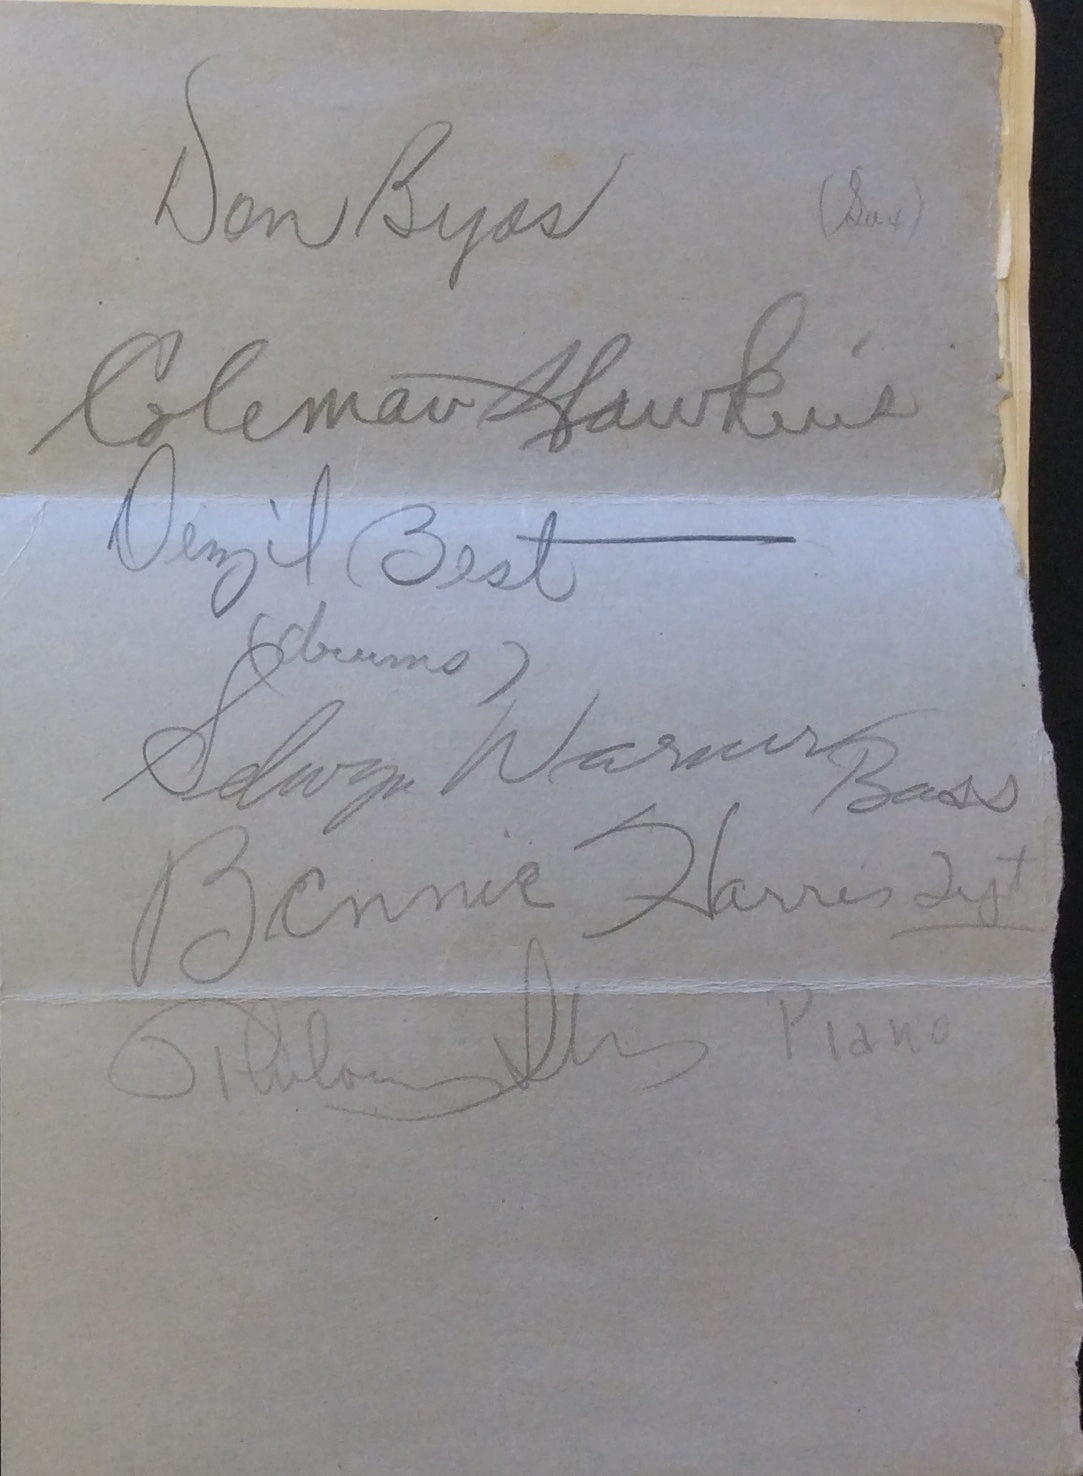 Don Byas (Sax)
Coleman Hawkins
Denzil Best
(drums)
Selwyn Warner Bass
Bennie Harris
Thelonious Piano